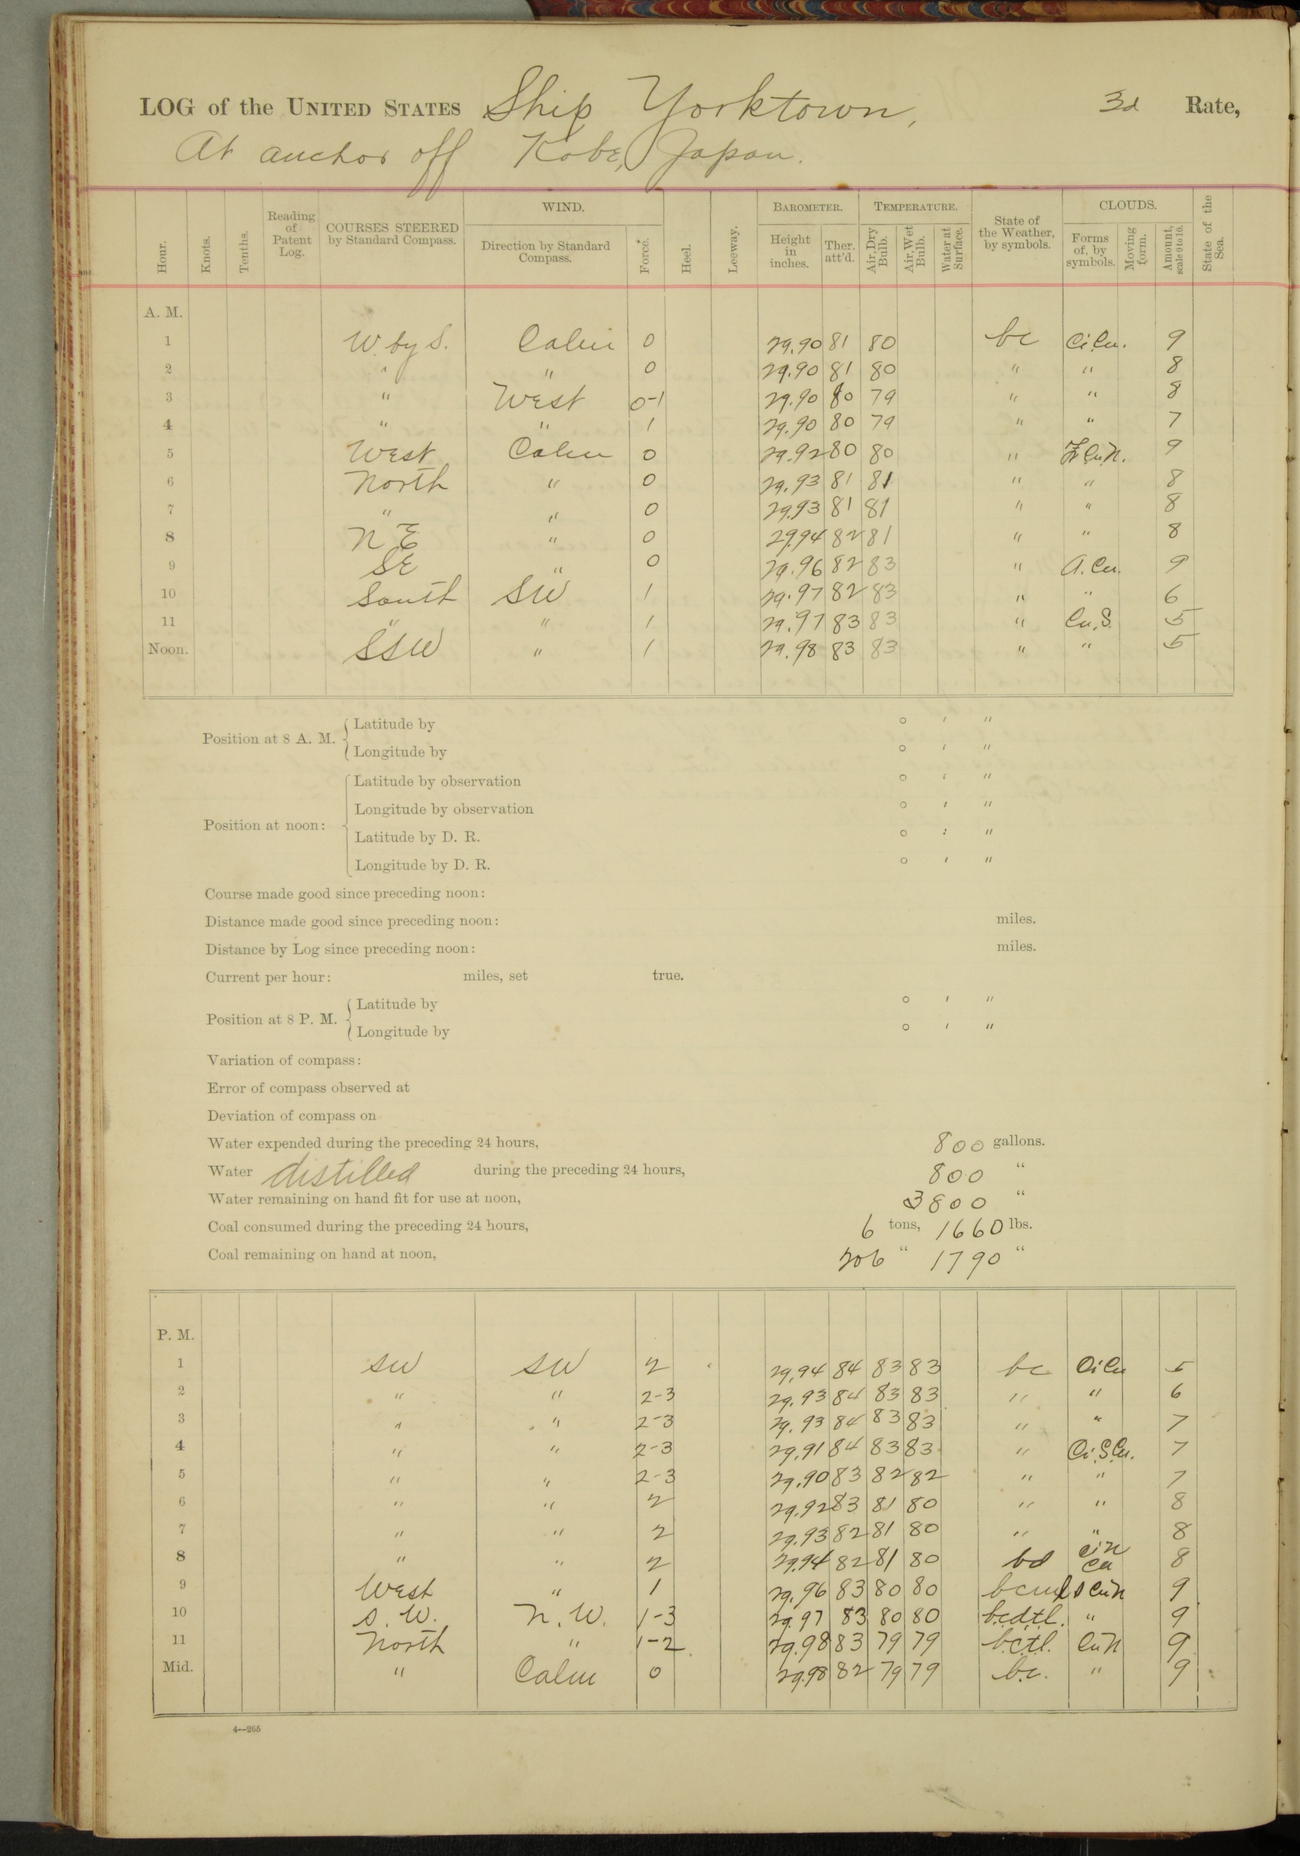 LOG of the UNITED STATES Ship Yorktown, 3d Rate,
At anchor off Kobe, Japan.
Hour. Knots. Tenths. Reading of Patent Log. COURSES STEERED by Standard Compass. WIND. Direction by Standard Compass. Force. Heel. Leeway. BAROMETER. Height in inches. Ther. att'd. TEMPERATURE. Air, Dry Bulb. Air, Wet Bulb. Water at Surface. State of the Weather, by symbols. CLOUDS. Forms of, by symbols. Moving form. Amount, scale 0 to 10. State of the Sea.
A. M.
1 W. by S. Calm 0 29.90 81 80 bc Ci.Cu. 9
2 " " 0 29.90 81 80 " " 8
3 " West 0-1 29.90 80 79 " " 8
4 " " 1 29.90 80 79 " " 7
5 West Calm 0 29.92 80 80 " Cu.N. 9
6 North " 0 29.93 81 81 " " 8
7 " " 0 29.93 81 81 " " 8
8 N E " 0 29.94 82 81 " " 8
9 SE " 0 29.96 82 83 " A.Cu. 9
10 South SW 1 29.97 82 83 " " 6
11 " " 1 29.97 83 83 " Cu.S. 5
Noon. SSW " 1 29.98 83 83 " " 5
Position at 8 A. M. Latitude by ° ' "
Longitude by ° ' "
Position at noon: Latitude by observation ° ' "
Longitude by observation ° ' "
Latitude by D. R. ° ' "
Longitude by D. R. ° ' "
Course made good since preceding noon:
Distance made good since preceding noon: miles.
Distance by Log since preceding noon: miles.
Current per hour: miles, set true.
Position at 8 P. M. Latitude by ° ' "
Longitude by ° ' "
Variation of compass:
Error of compass observed at
Deviation of compass on
Water expended during the preceding 24 hours, 800 gallons.
Water distilled during the preceding 24 hours, 800 "
Water remaining on hand fit for use at noon, 3800 "
Coal consumed during the preceding 24 hours, 6 tons, 1660 lbs.
Coal remaining on hand at noon, 206 " 1790 "
P. M.
1 SW SW 2 29.94 84 83 83 bc Ci Cu 5
2 " " 2-3 29.93 84 83 83 " " 6
3 " " 2-3 29.93 84 83 83 " " 7
4 " " 2-3 29.91 84 83 83 " Ci.S.Cu. 7
5 " " 2-3 29.90 83 82 82 " " 7
6 " " 2 29.92 83 81 80 " " 8
7 " " 2 29.93 82 81 80 " " 8
8 " " 2 29.94 82 81 80 bd Ci N Cu 8
9 West " 1 29.96 83 80 80 Cu N 9
10 S. W. N. W. 1-3 29.97 83 80 80 bcdtl. " 9
11 North " 1-2 29.98 83 79 79 bctl. Cu N 9
Mid. " Calm 0 29.98 82 79 79 b.c. " 9
4—265